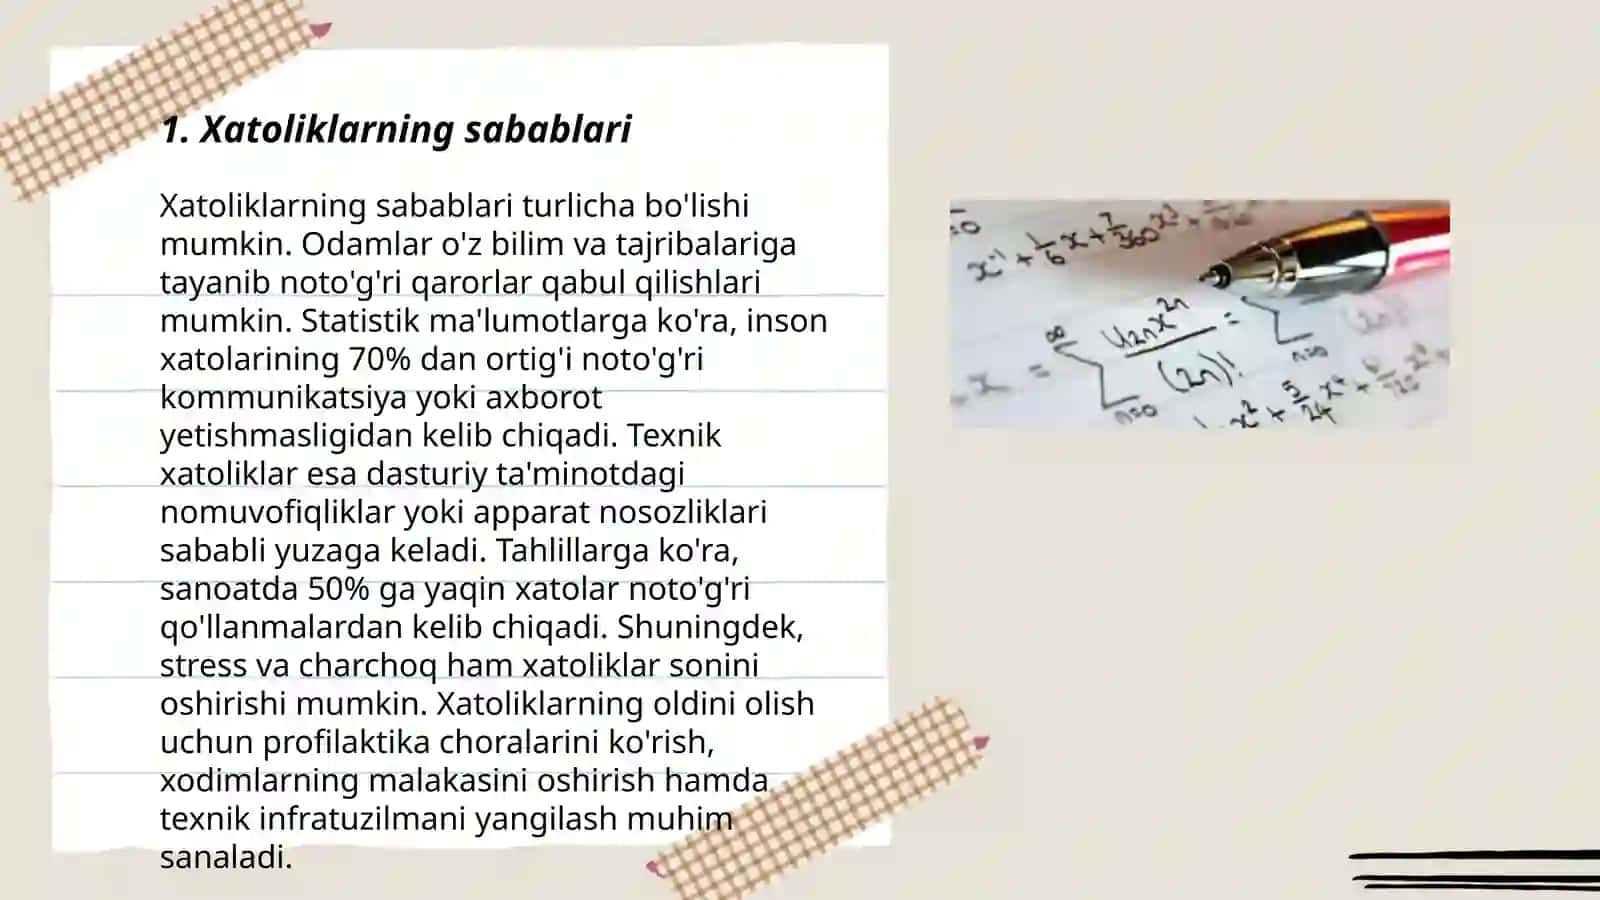 1. Xatoliklarning sabablari
Xatoliklarning sabablari turlicha bo'lishi
mumkin. Odamlar o'z bilim va tajribalariga
tayanib noto'g'ri qarorlar qabul qilishlari
mumkin. Statistik ma'lumotlarga ko'ra, inson
xatolarining 70% dan ortig'i noto'g'ri
kommunikatsiya yoki axborot
yetishmasligidan kelib chiqadi. Texnik
xatoliklar esa dasturiy ta'minotdagi
nomuvofiqliklar yoki apparat nosozliklari
sababli yuzaga keladi. Tahlillarga ko'ra,
sanoatda 50% ga yaqin xatolar noto'g'ri
qo'llanmalardan kelib chiqadi. Shuningdek,
stress va charchoq ham xatoliklar sonini
oshirishi mumkin. Xatoliklarning oldini olish
uchun profilaktika choralarini ko'rish,
xodimlarning malakasini oshirish hamda
texnik infratuzilmani yangilash muhim
sanaladi.